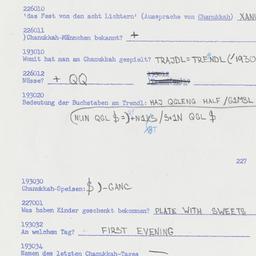 226010
'das Fest von den acht Lichtern' (Aussprache von Chanukkah) XAN
226011
)Chanukkah-Männchen bekannt? +
193010
Womit hat man am Chanukkah gespielt? TRAJDL=TRENDL (/1930
226012
Nüsse? + QQ
193020
Bedeutung der Buchstaben am Trendl: HAJ QGLENG HALF /GIMBL
227
193030
Chanukkah-Speisen: )-GANC
227001
Was haben Kinder geschenkt bekommen? PLATE WITH SWEETS
193032
An welchem Tag? FIRST EVENING
193034
Namen des letzten Chanukkah-Tages —